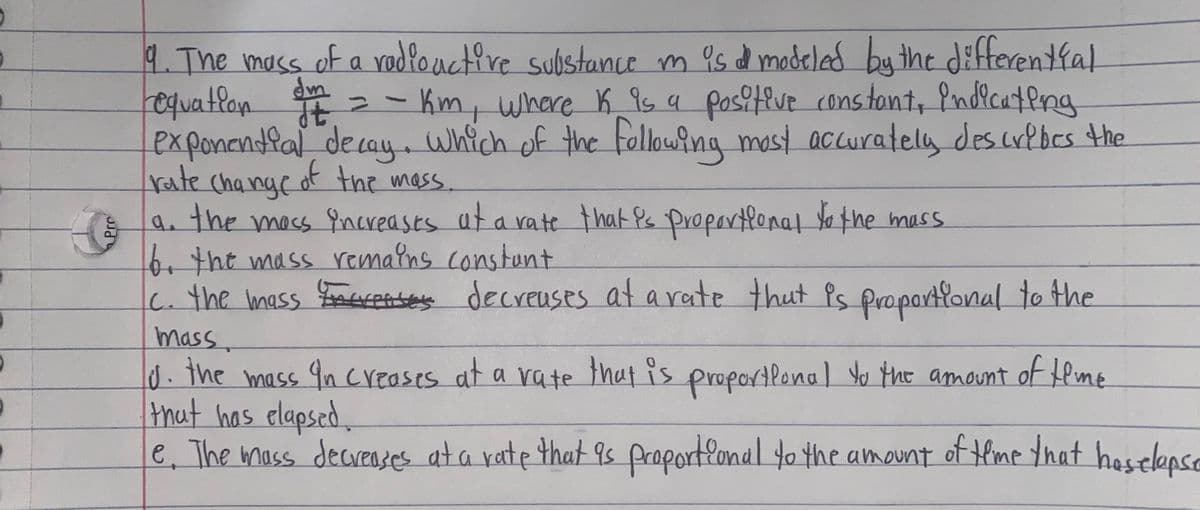 9. The mass of a radioactive substance m is modeled by the differential
equation dm/dt = - Km, where K is a positive constant, indicating
exponential decay. Which of the following most accurately describes the
rate change of the mass.
a. the mass increases at a rate that is proportional to the mass
b. the mass remains constant
c. the mass decreases at a rate that is proportional to the
mass.
d. the mass increases at a rate that is proportional to the amount of time
that has elapsed.
e. The mass decreases at a rate that is proportional to the amount of time that has elapse
Pro